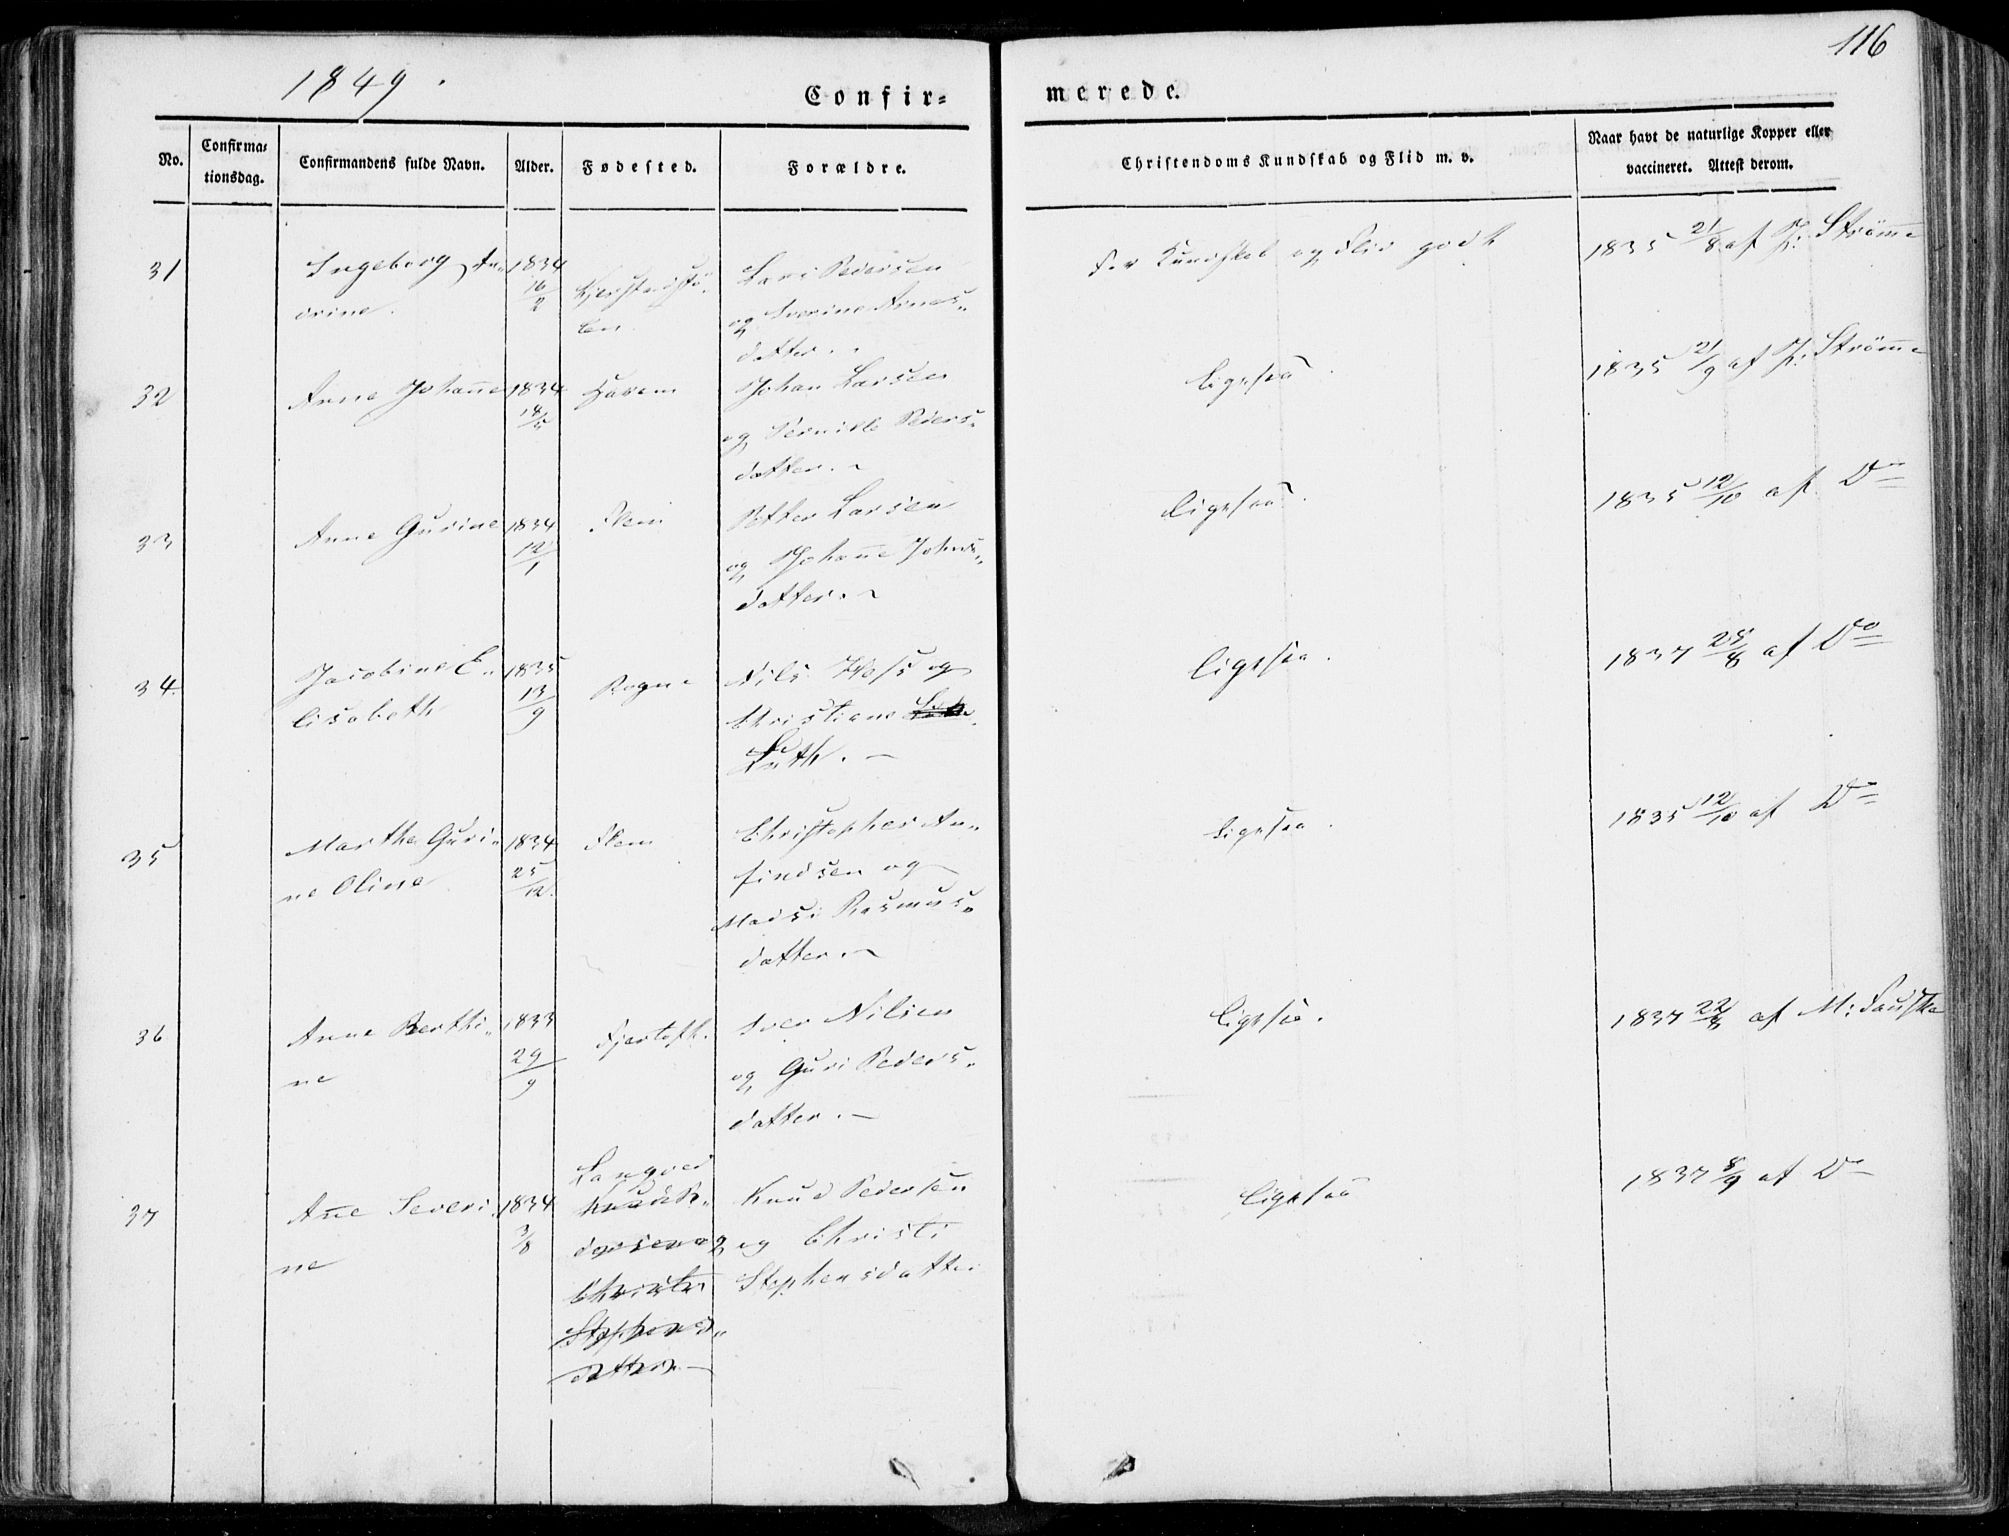 1849.
116
Confir=
merede.
No.
Confirma=
tionsdag.
Confirmandens fulde Navn.
Alder.
Fødested.
Forældre.
Christendoms Kundskab og Flid m. v.
Naar havt de naturlige Kopper eller
vaccineret. Attest derom.
31
Ingeborg An„
drine.
1834
16/2
Lars Pedersen
og Severine Arnes„
datter.
For Kundskab og Flid godt
1835 21/8 af P: Strømme
32
Anne Johanne
1834
14/5
Johan Larsen
og Pernille Peders„
datter.
Ligesaa
1835 21/9 af P: Strømme
33
Anne Gurine
1834
12/1
Flem
Petter Larsen
og Johanne Johns„
datter.
Ligesaa.
1835 12/10 af Do
34
Jacobine E„
lisabeth
1835
13/9
Rogne
Nils Hoss og
Christiane
Luth.
Ligesaa.
1837 25/8 af Do
35
Marthe Guri„
ne Oline
1834
25/12
Flem
Christopher An„
findsen og
Madsi Rasmus„
datter.
Ligesaa.
1835 12/10 af Do
36
Anne Berthi„
ne
1833
29/9
Fjertoft.
Iver Nilsen
og Guri Peders„
datter.
Ligesaa.
1837 22/8 af M: Fauske
37
Anne Severi„
ne
1834
3/8
Langva
Knud Pe„
dersen og
Christi
Stephens„
datter.
Knud Pedersen
og Christi
Stephensdatter
Ligesaa
1837 8/9 af Do